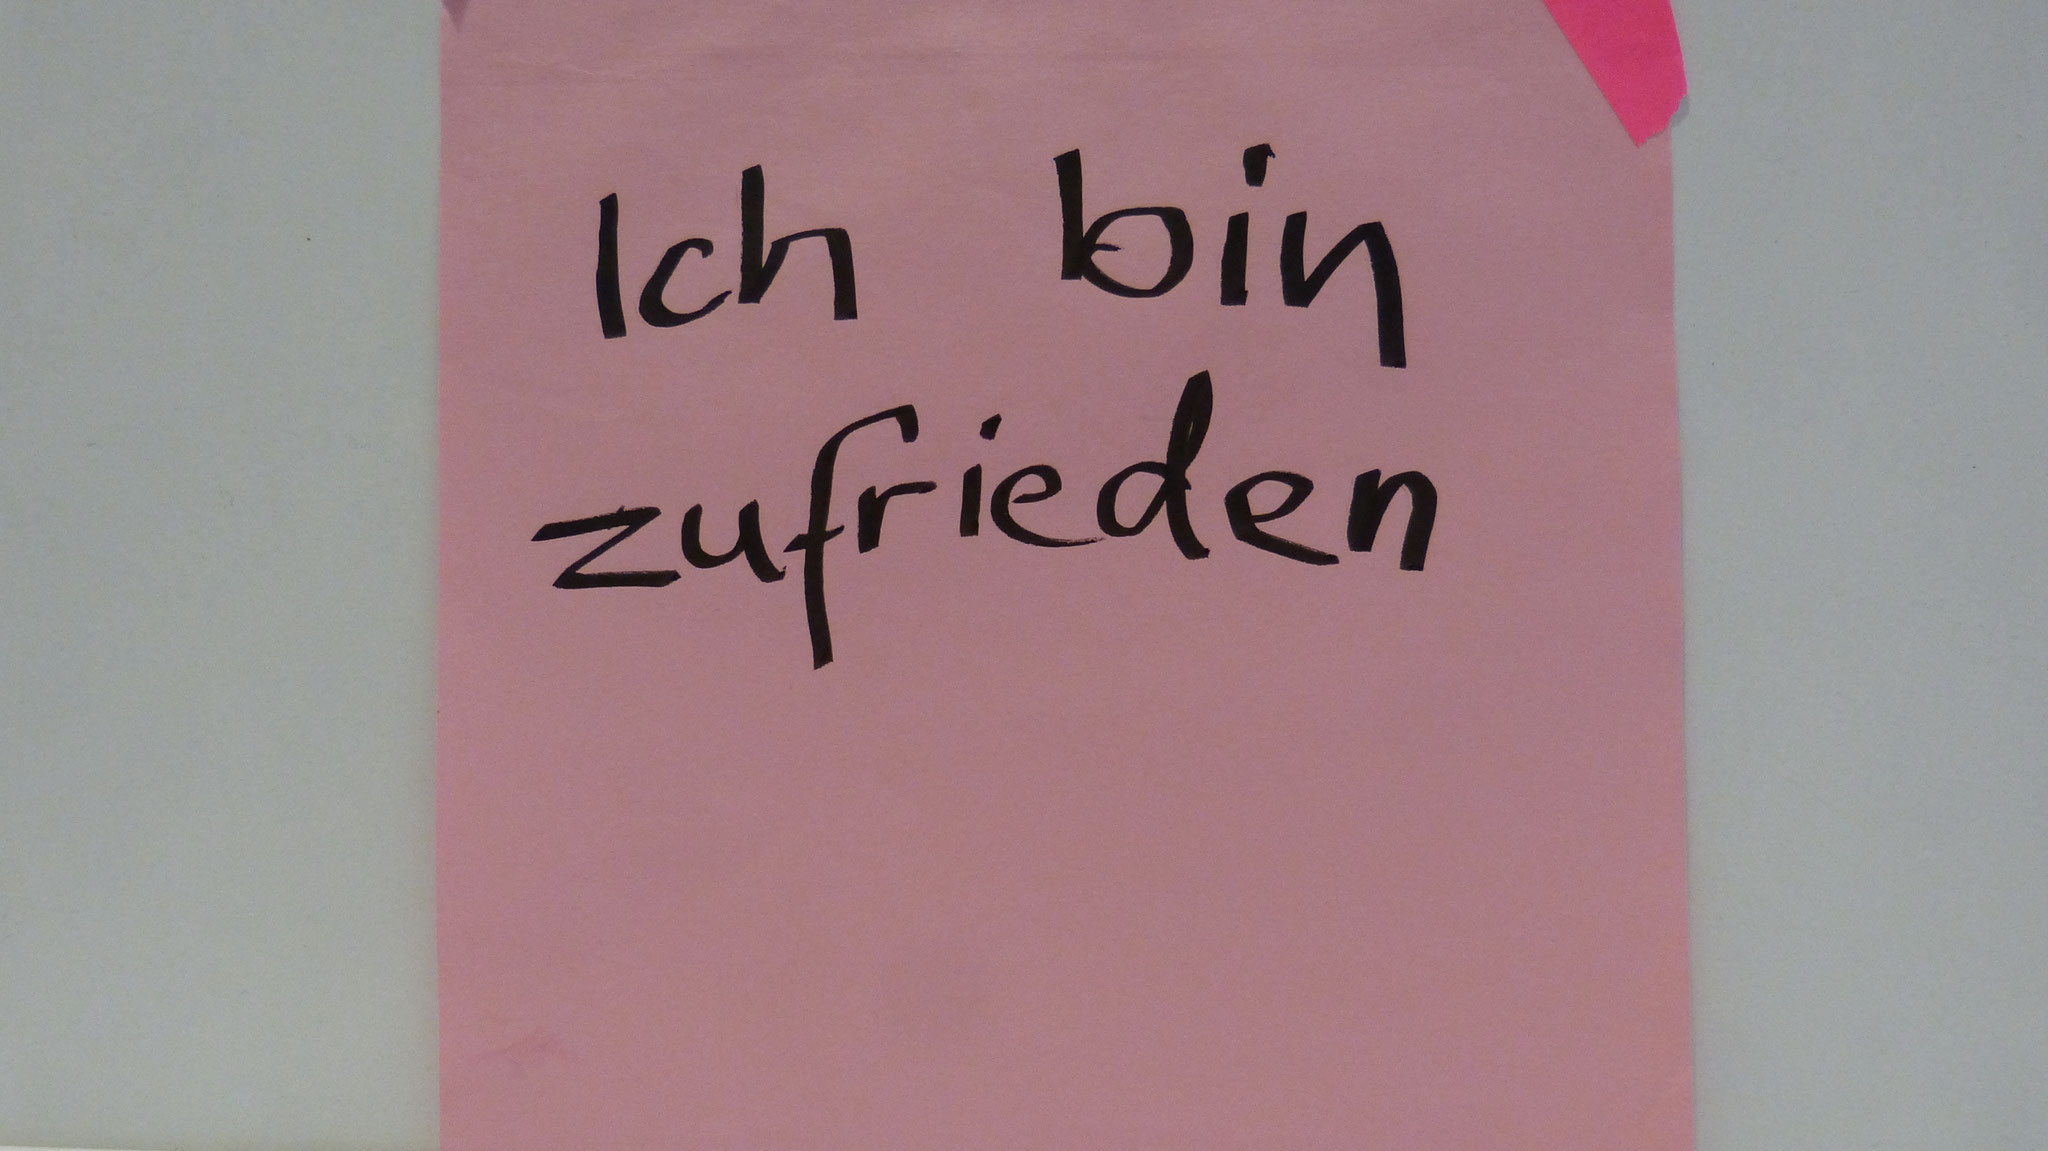 Ich bin
zufrieden